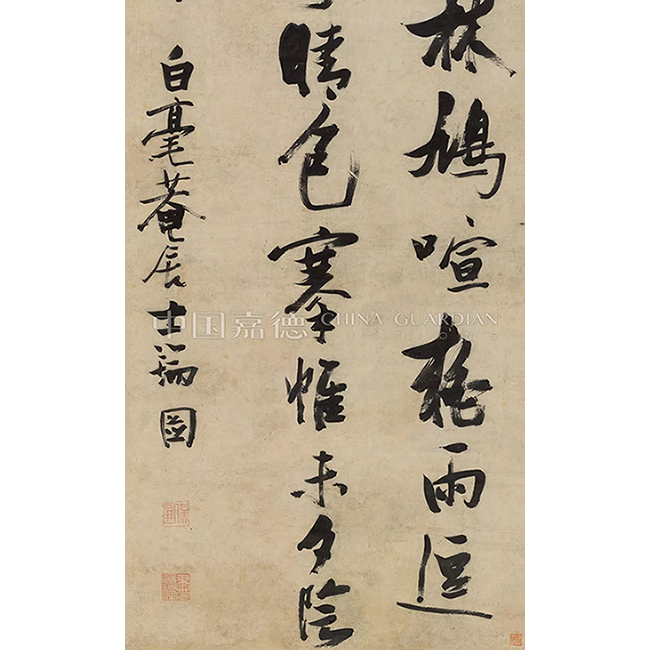 林鳩喧椿雨逗
晴色搴帷未夕陰
白毫菴居士瑞圖
中国嘉德 CHINA GUARDIAN